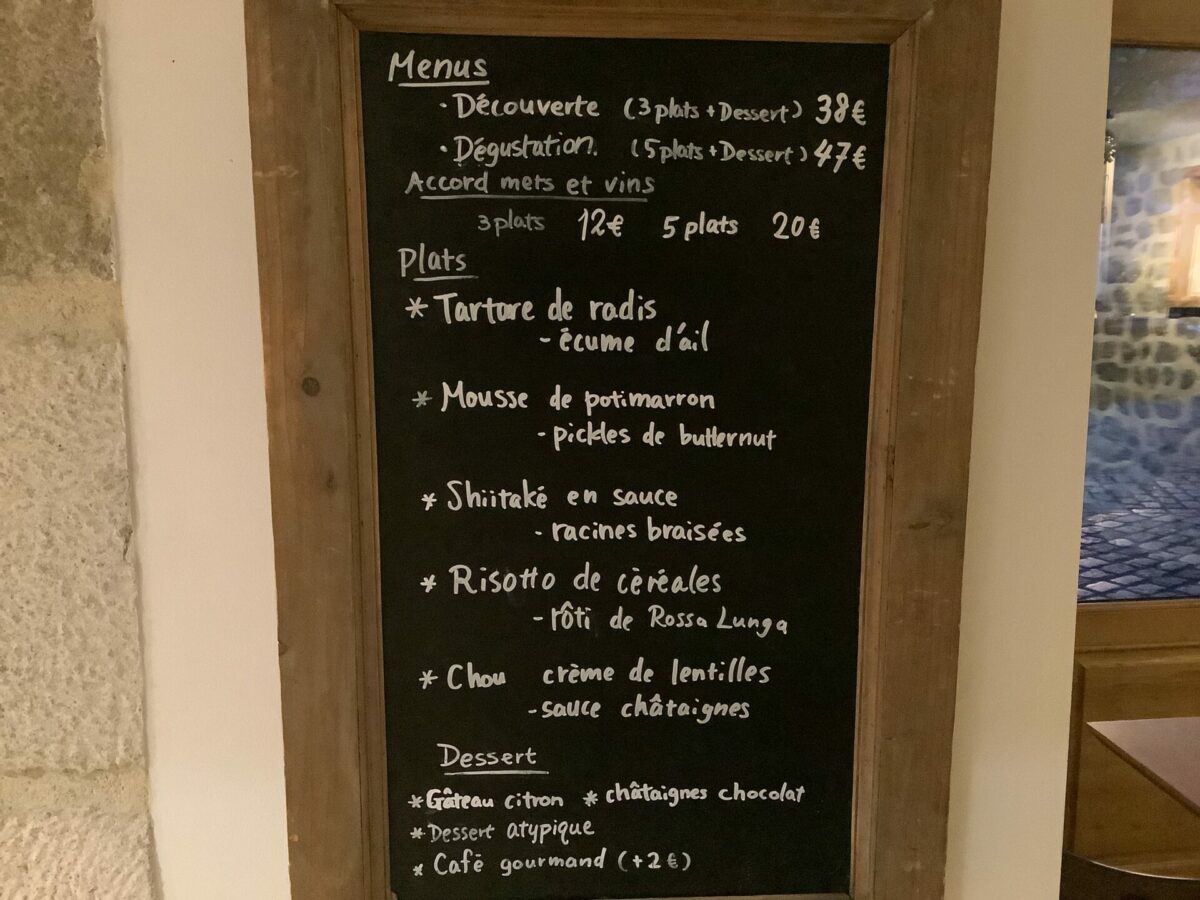 Menus
· Découverte (3 plats + Dessert) 38€
· Dégustation. (5 plats + Dessert) 47€
Accord mets et vins
3 plats 12€ 5 plats 20€
Plats
* Tartare de radis
- écume d'ail
* Mousse de potimarron
- pickles de butternut
* Shiitaké en sauce
- racines braisées
* Risotto de cèréales
- rôti de Rossa Lunga
* Chou crème de lentilles
- sauce châtaignes
Dessert
* Gâteau citron * châtaignes chocolat
* Dessert atypique
* Café gourmand (+2€)